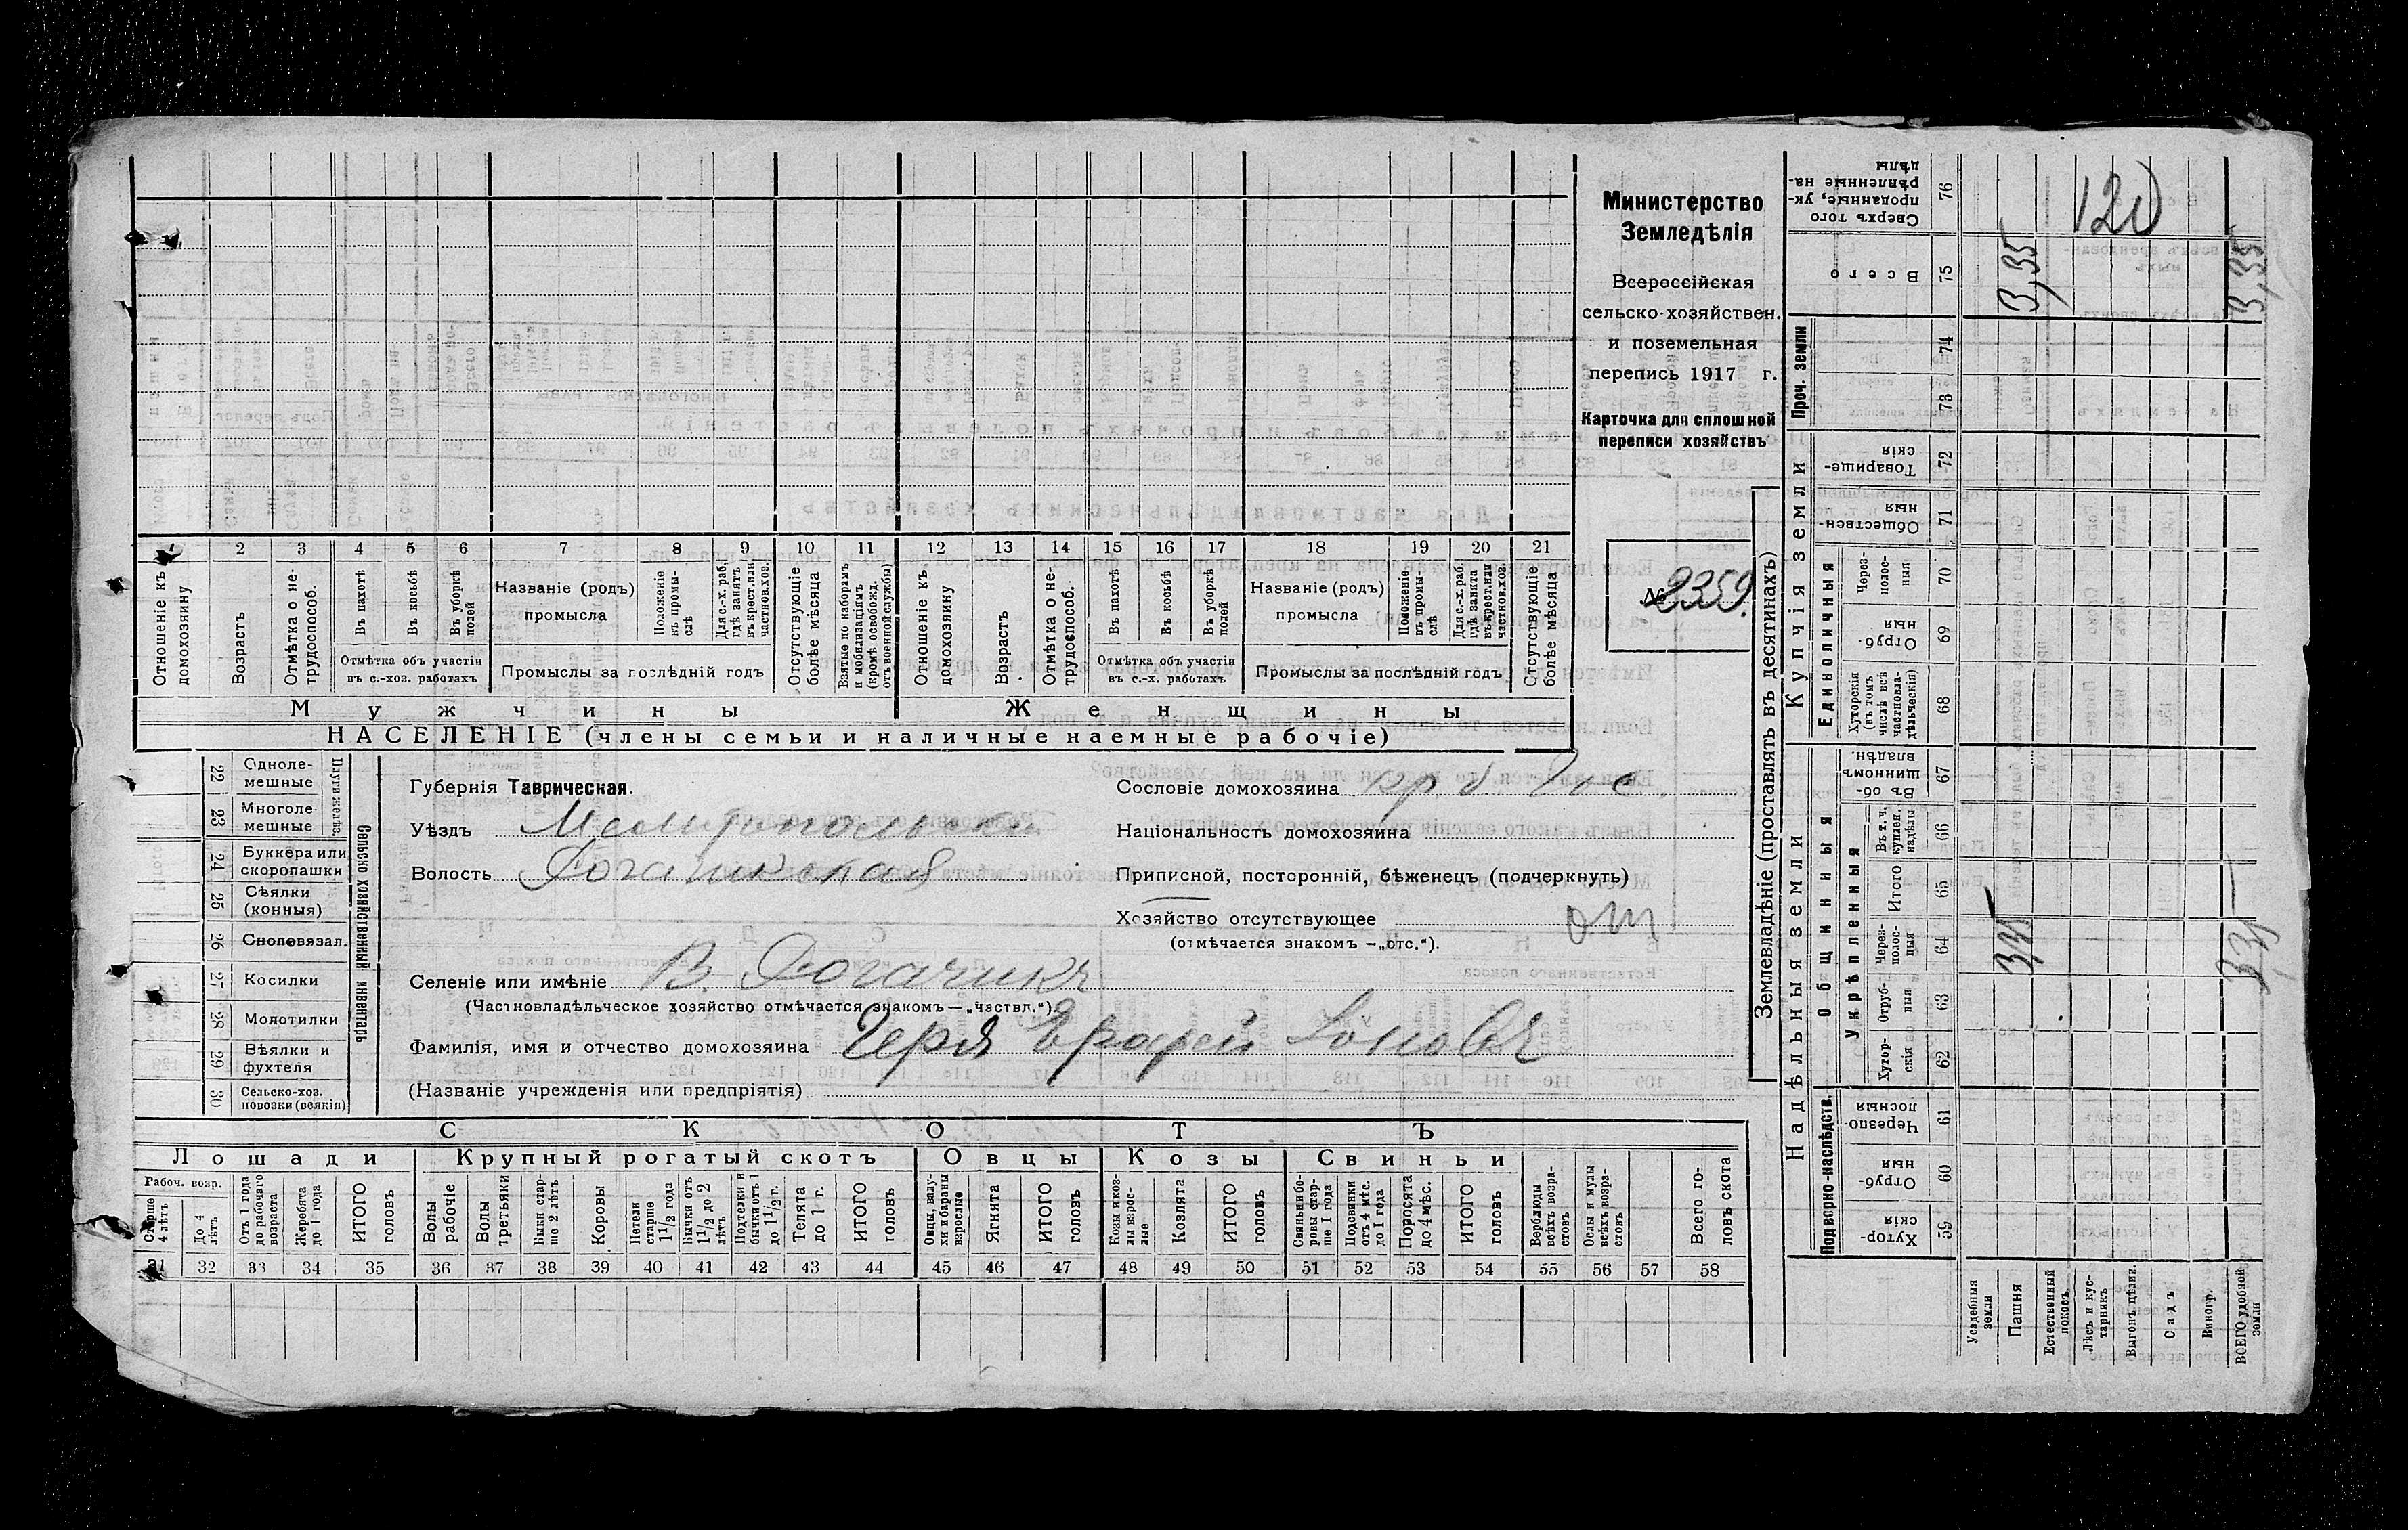 Министерство
Земледѣлія
Всероссійская
сельско-хозяйствен.
и поземельная
перепись 1917 г.
Карточка для сплошной
переписи хозяйствъ
№ 2359
1 2 3 4 5 6 7 8 9 10 11 12 13 14 15 16 17 18 19 20 21
Отношеніе къ домохозяину
Возрастъ
Отмѣтка о не-трудоспособ.
Въ пахотѣ
Въ косьбѣ
Въ уборкѣ полей
Отмѣтка объ участіи въ с.-хоз. работахъ
Названіе (родъ) промысла
Положеніе въ промы-слѣ
Для с.-х. раб. гдѣ занятъ въ крест. или частнов. хоз.
Промыслы за послѣдній годъ
Отсутствующіе болѣе мѣсяца
Взятые по наборамъ и мобилизаціямъ (кромѣ освобожд. отъ военной службы)
Отношеніе къ домохозяину
Возрастъ
Отмѣтка о не-трудоспособ.
Въ пахотѣ
Въ косьбѣ
Въ уборкѣ полей
Отмѣтка объ участіи въ с.-х. работахъ
Названіе (родъ) промысла
Положеніе въ промы-слѣ
Для с.-х. раб. гдѣ занята въ крест. или частнов. хоз.
Промыслы за послѣдній годъ
Отсутствующіе болѣе мѣсяца
Мужчины Женщины
НАСЕЛЕНІЕ (члены семьи и наличные наемные рабочіе)
22 Одноле-мешные
23 Многоле-мешные
Плуги желѣз.
24 Буккера или скоропашки
25 Сѣялки (конныя)
26 Сноповязал.
27 Косилки
28 Молотилки
29 Вѣялки и фухтеля
30 Сельско-хоз. повозки (всякія)
Сельско хозяйственный инвентарь
Губернія Таврическая.
Уѣздъ Мелитопольскій
Волость Рогачикская
Сословіе домохозяина
Національность домохозяина
Приписной, посторонній, бѣженецъ (подчеркнуть)
Хозяйство отсутствующее от
(отмѣчается знакомъ —„отс.“).
Селеніе или имѣніе В. Рогачикъ
(Частновладѣльческое хозяйство отмѣчается знакомъ—„частвл.“)
Фамилія, имя и отчество домохозяина
(Названіе учрежденія или предпріятія)
СКОТЪ
Лошади Крупный рогатый скотъ Овцы Козы Свиньи
Рабоч. возр.
Старше 4 лѣтъ
До 4 лѣтъ
Отъ 1 года до рабочаго возраста
Жеребята до 1 года
ИТОГО головъ
Волы рабочіе
Волы третьяки
Быки стар-ше 2 лѣтъ
Коровы
Нетели старше 1 1/2 года
Бычки отъ 1 1/2 до 2 лѣтъ
Подтелки и бычки отъ 1 до 1 1/2 г.
Телята до 1 г.
ИТОГО головъ
Овцы, валу-хи и бараны взрослые
Ягнята
ИТОГО головъ
Козы и коз-лы взрос-лые
Козлята
ИТОГО головъ
Свиньи и бо-ровы стар-ше 1 года
Подсвинки отъ 4 мѣс. до 1 года
Поросята до 4 мѣс.
ИТОГО головъ
Верблюды всѣхъ возра-стовъ
Ослы и мулы всѣхъ возра-стовъ
Всего го-ловъ скота
31 32 33 34 35 36 37 38 39 40 41 42 43 44 45 46 47 48 49 50 51 52 53 54 55 56 57 58
Землевладѣніе (проставлять въ десятинахъ)
Надѣльныя земли
Купчія земли
Проч. земли
Подворно-наслѣдств.
Общинныя
Укрѣпленныя
Единоличныя
Сверхъ того проданные, ук-рѣпленные на-дѣлы 76
Всего 75
74
73
Товарище-скія 72
Обществен-ныя 71
Через-полос-ныя 70
Отруб-ныя 69
Хуторскія (въ томъ числѣ всѣ частновла-дѣльческія) 68
Въ об-щинномъ владѣн. 67
Въ т. ч. куплен. надѣлы 66
Итого 65
Через-полос-ныя 64
Отруб-ныя 63
Хутор-скія 62
Черезпо-лосныя 61
Отруб-ныя 60
Хутор-скія 59
Усадебныя земли
Пашня
Естественный покосъ
Лѣсъ и кус-тарникъ
Выгонъ цѣлин.
Садъ
Виногр.
ВСЕГО удобной земли
120
3,35
3,35
3,35
3,35